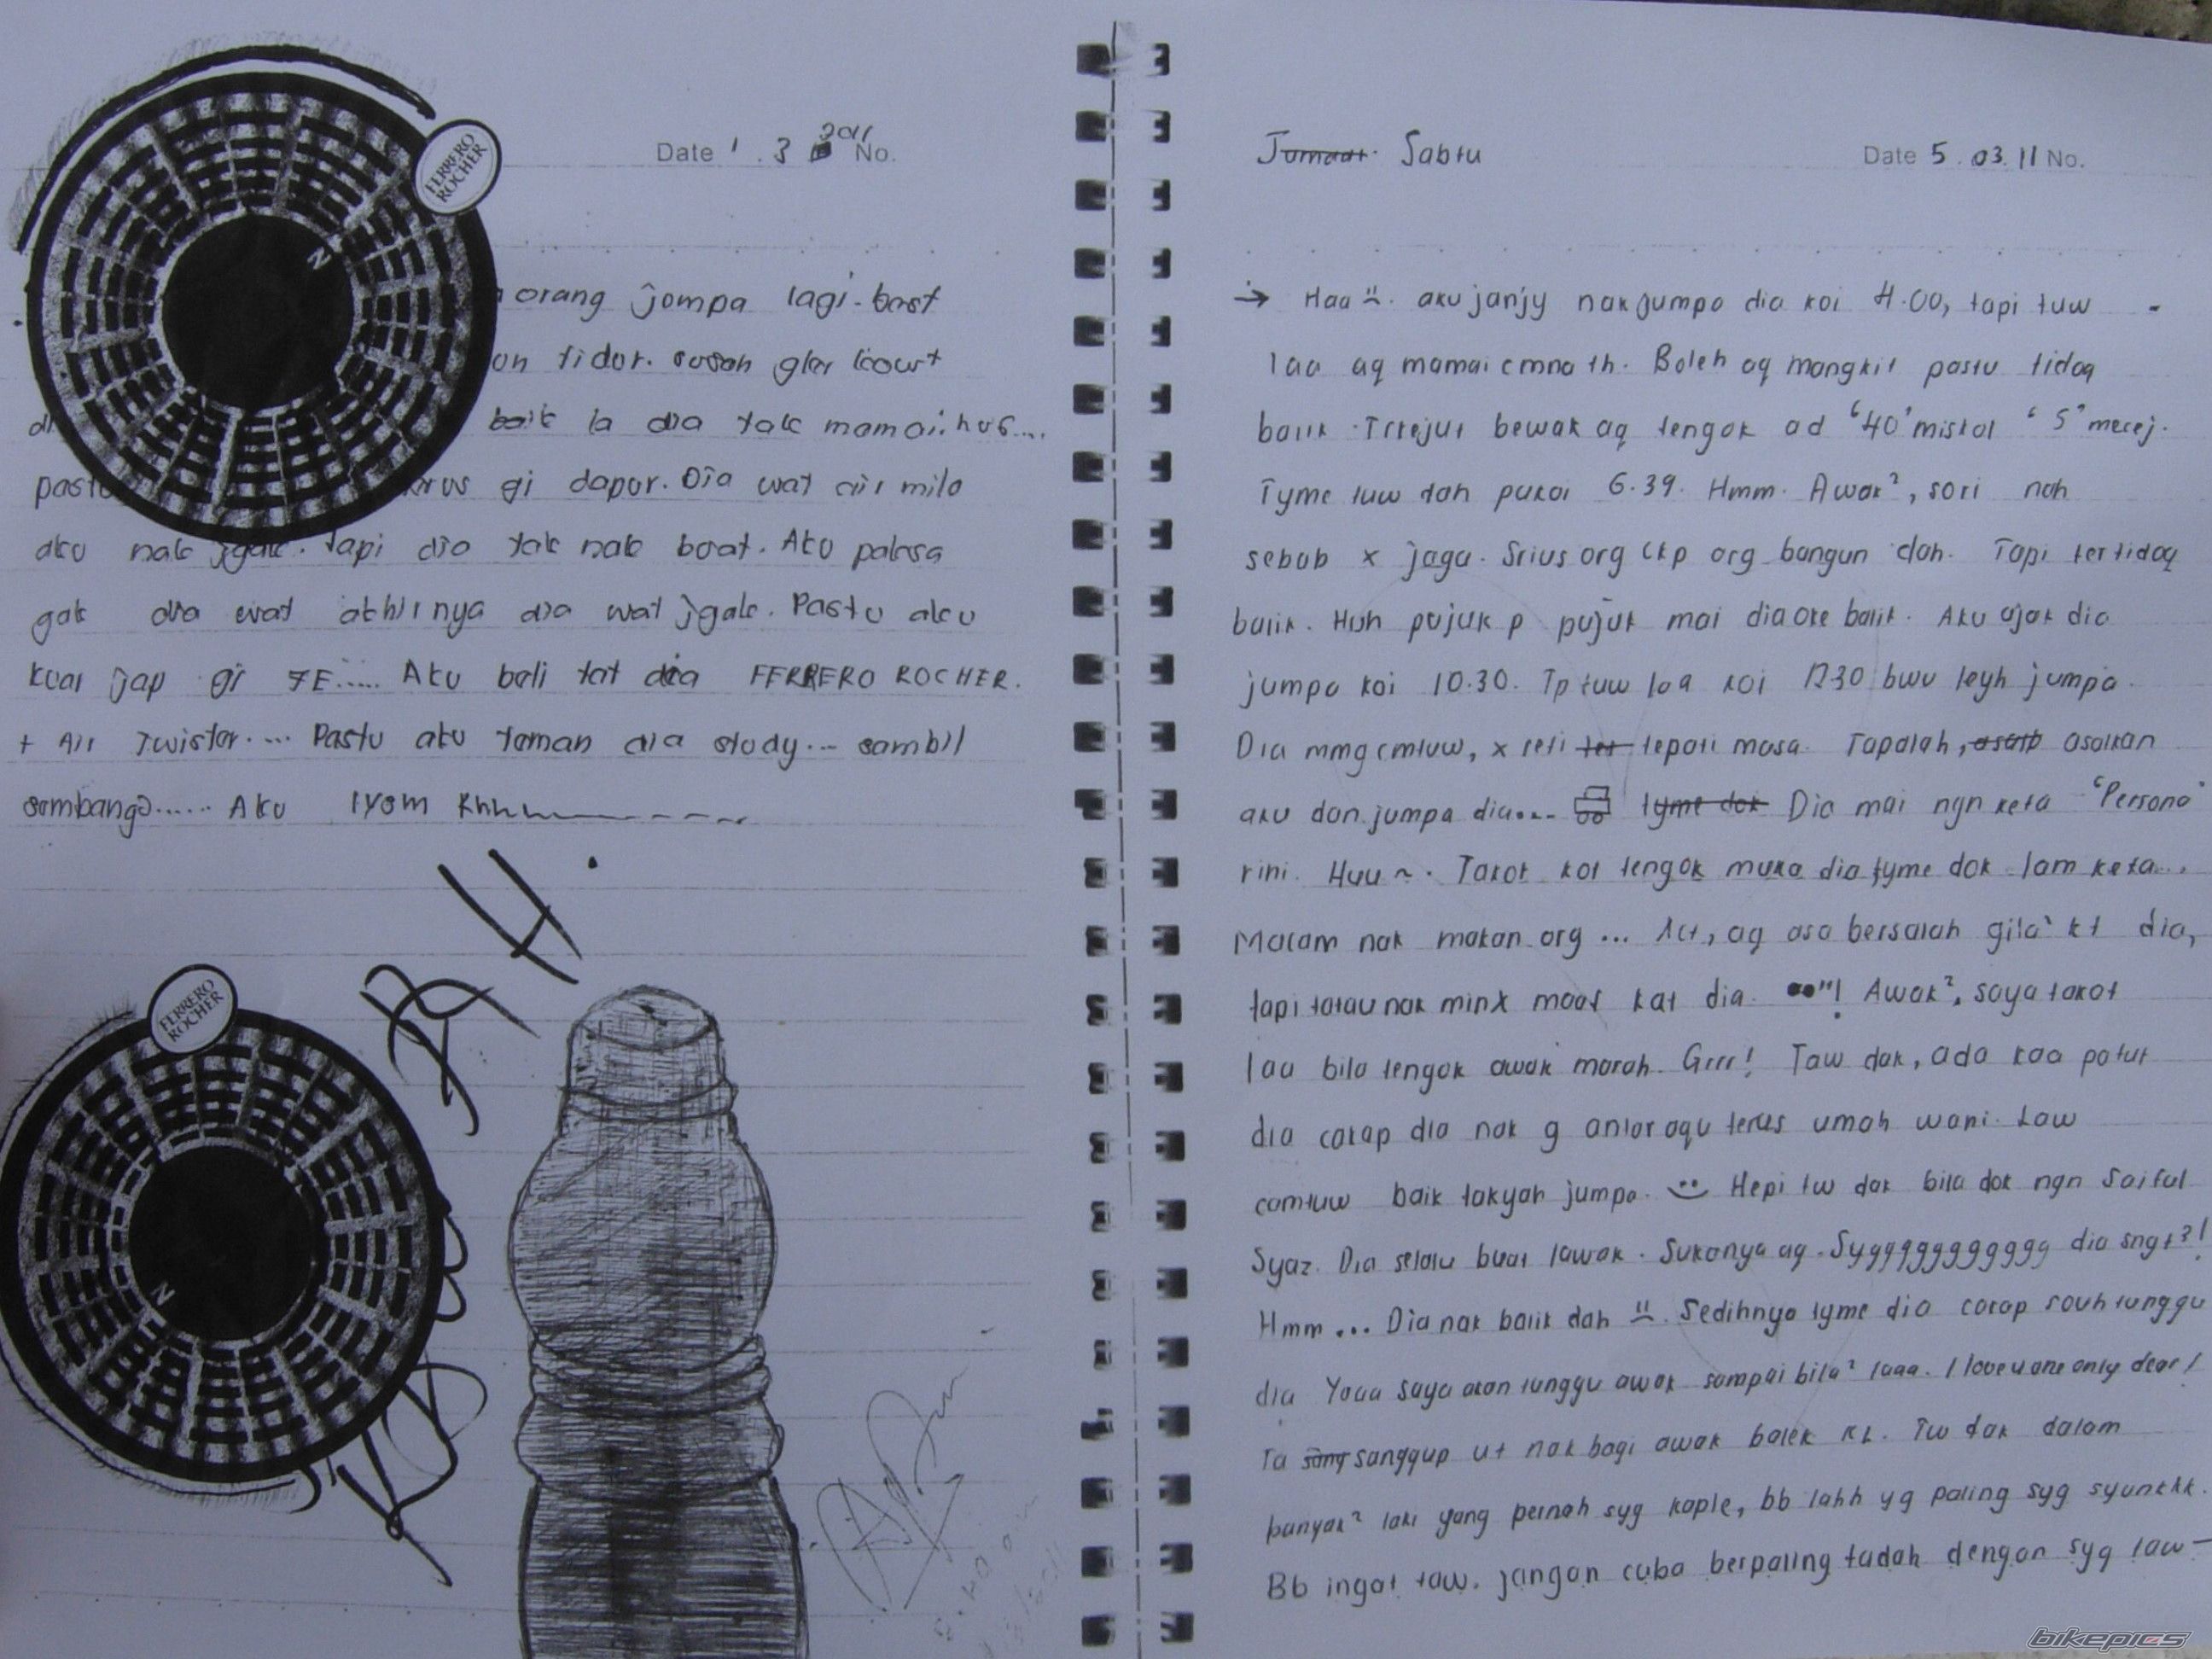 FERRERO ROCHER
Date 1 . 3 2011 No.
orang jompa lagi-
on tidor. susah
baik la dia tak mamai. huh....
pastu gi dapor. Dia wat air milo
aku nak jgak. tapi dia tak nak boat. Aku paksa
gak dia wat akhirnya dia wat jgak. Pastu aku
kuar jap gi 7E..... Aku beli tat dia FERRERO ROCHER.
+ Air Twister.... Pastu aku teman dia study... sambil
sembang2...... Aku
FERRERO
ROCHER
Jumaat Sabtu
Date 5 . 03. 11 No.
→ Haa aku janjy nak jumpa dia koi 4.00, tapi tuw
laa aq mamai cmna th. Boleh aq mangkit pastu tidoq
balik. Trtejut bewak aq tengok ad '40' miskol '5' mecej.
Tyme tuw dah pukoi 6.39. Hmm. Awak², sori nah
sebab x jaga. Srius org ckp org bangun dah. Tapi tertidoq
balik. Huh pujuk p pujuk mai dia oke balik. Aku ajak dia
jumpa koi 10.30. Tp tuw laa koi 12.30 bwu leyh jumpa.
Dia mmg cmtuw, x reti tet tepati masa. Tapalah, asalkan
aku dan jumpa dia.... tyme dok Dia mai ngn keta "Persona"
rini. Huu ~. Takot koi tengok muka dia tyme dok lam keta...
Macam nak makan org ... Act, aq asa bersalah gila² kt dia,
tapi tatau nak mintx maaf kat dia. "! Awak², saya takot
laa bila tengok awak marah. Grrr! Taw dak, ada kaa patut
dia cakap dia nak g antar aqu terus umah wani. Law
camtuw baik takyah jumpa. Hepi tw dak bila dok ngn Saiful
Syaz. Dia selalu buat lawak. Sukanya aq. Sygggggggggggg dia sngt²!
Hmm ... Dia nak balik dah. Sedihnya tyme dia cakap suuh tunggu
dia Yaaa saya akan tunggu awak sampai bila² laaa. I love u one only dear!
Ta sang sanggup ut nak bagi awak balek KL. Tw dak dalam
banyak² laki yang pernah syg kaple, bb lahh yg paling syg syunkkk.
Bb ingat taw. jangan cuba berpaling tadah dengan syg law-
bikepics